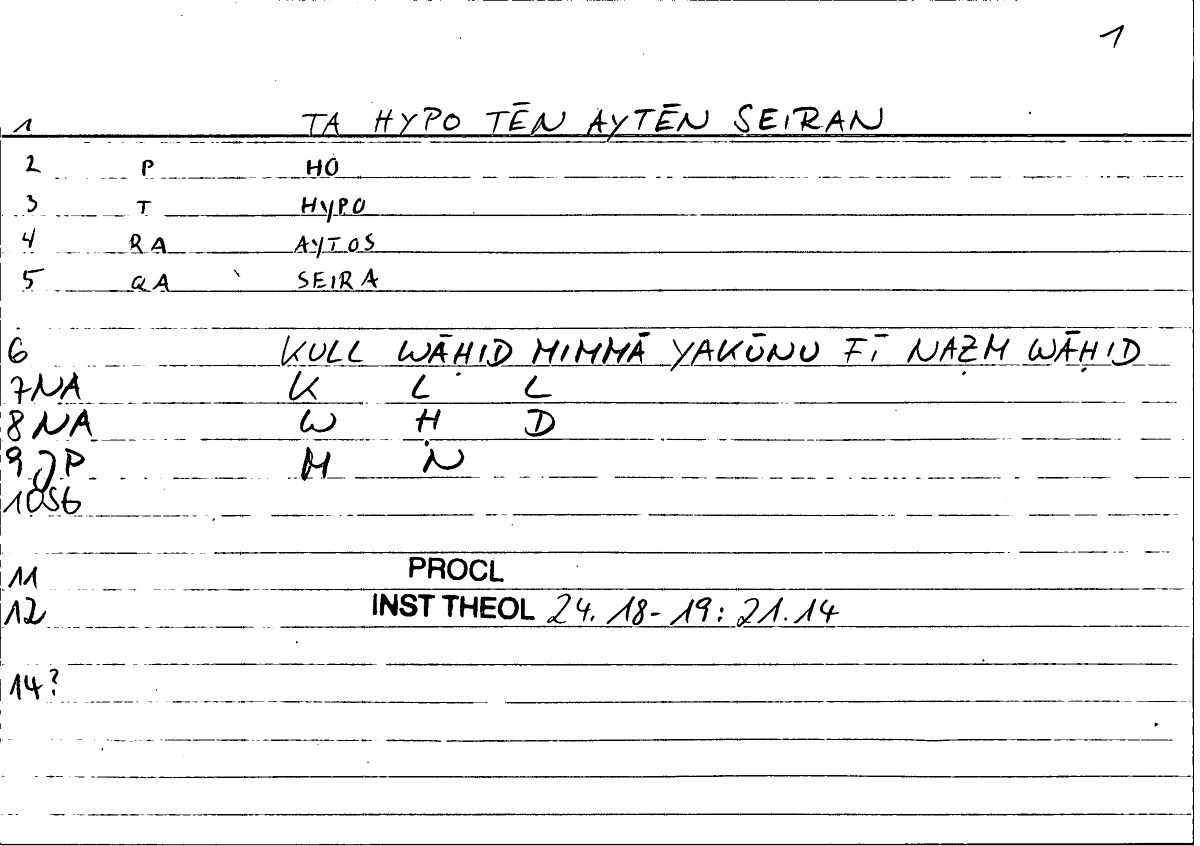 1
1 TA HYPO TĒN AYTĒN SEIRAN
2 P HO
3 T HYPO
4 RA AYTOS
5 QA SEIRA
6 KULL WĀḤID MIMMĀ YAKŪNU FĪ NAẒM WĀḤID
7 NA K L L
8 NA W Ḥ D
9 JP M N
10 SG
11 PROCL
12 INST THEOL 24.18-19: 21.14
14?